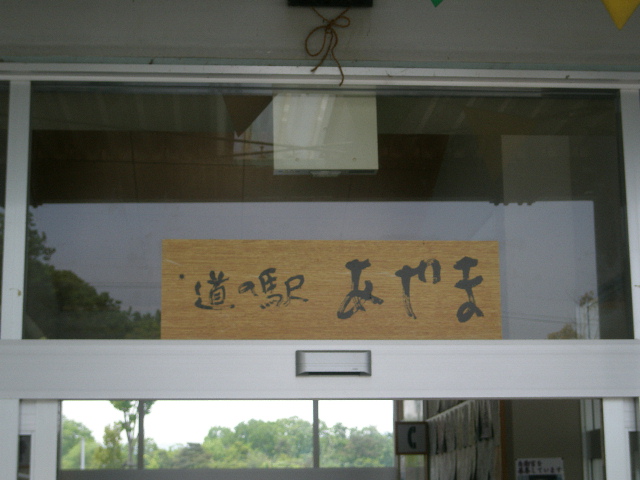 道の駅 あやま
C